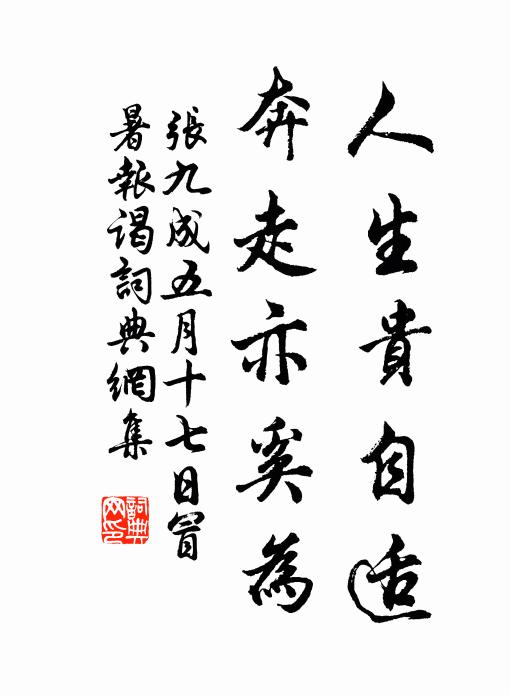 人生貴自适
奔走亦奚為
張九成五月十七日冒
暑報謁詞典網集
詞典
网印